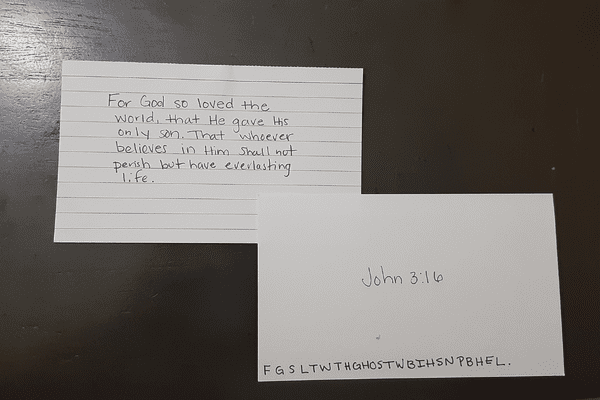 For God so loved the
world, that He gave His
only son. That whoever
believes in Him shall not
perish but have everlasting
life.
John 3:16
F G S L T W T H G H O S T W B I H S N P B H E L .